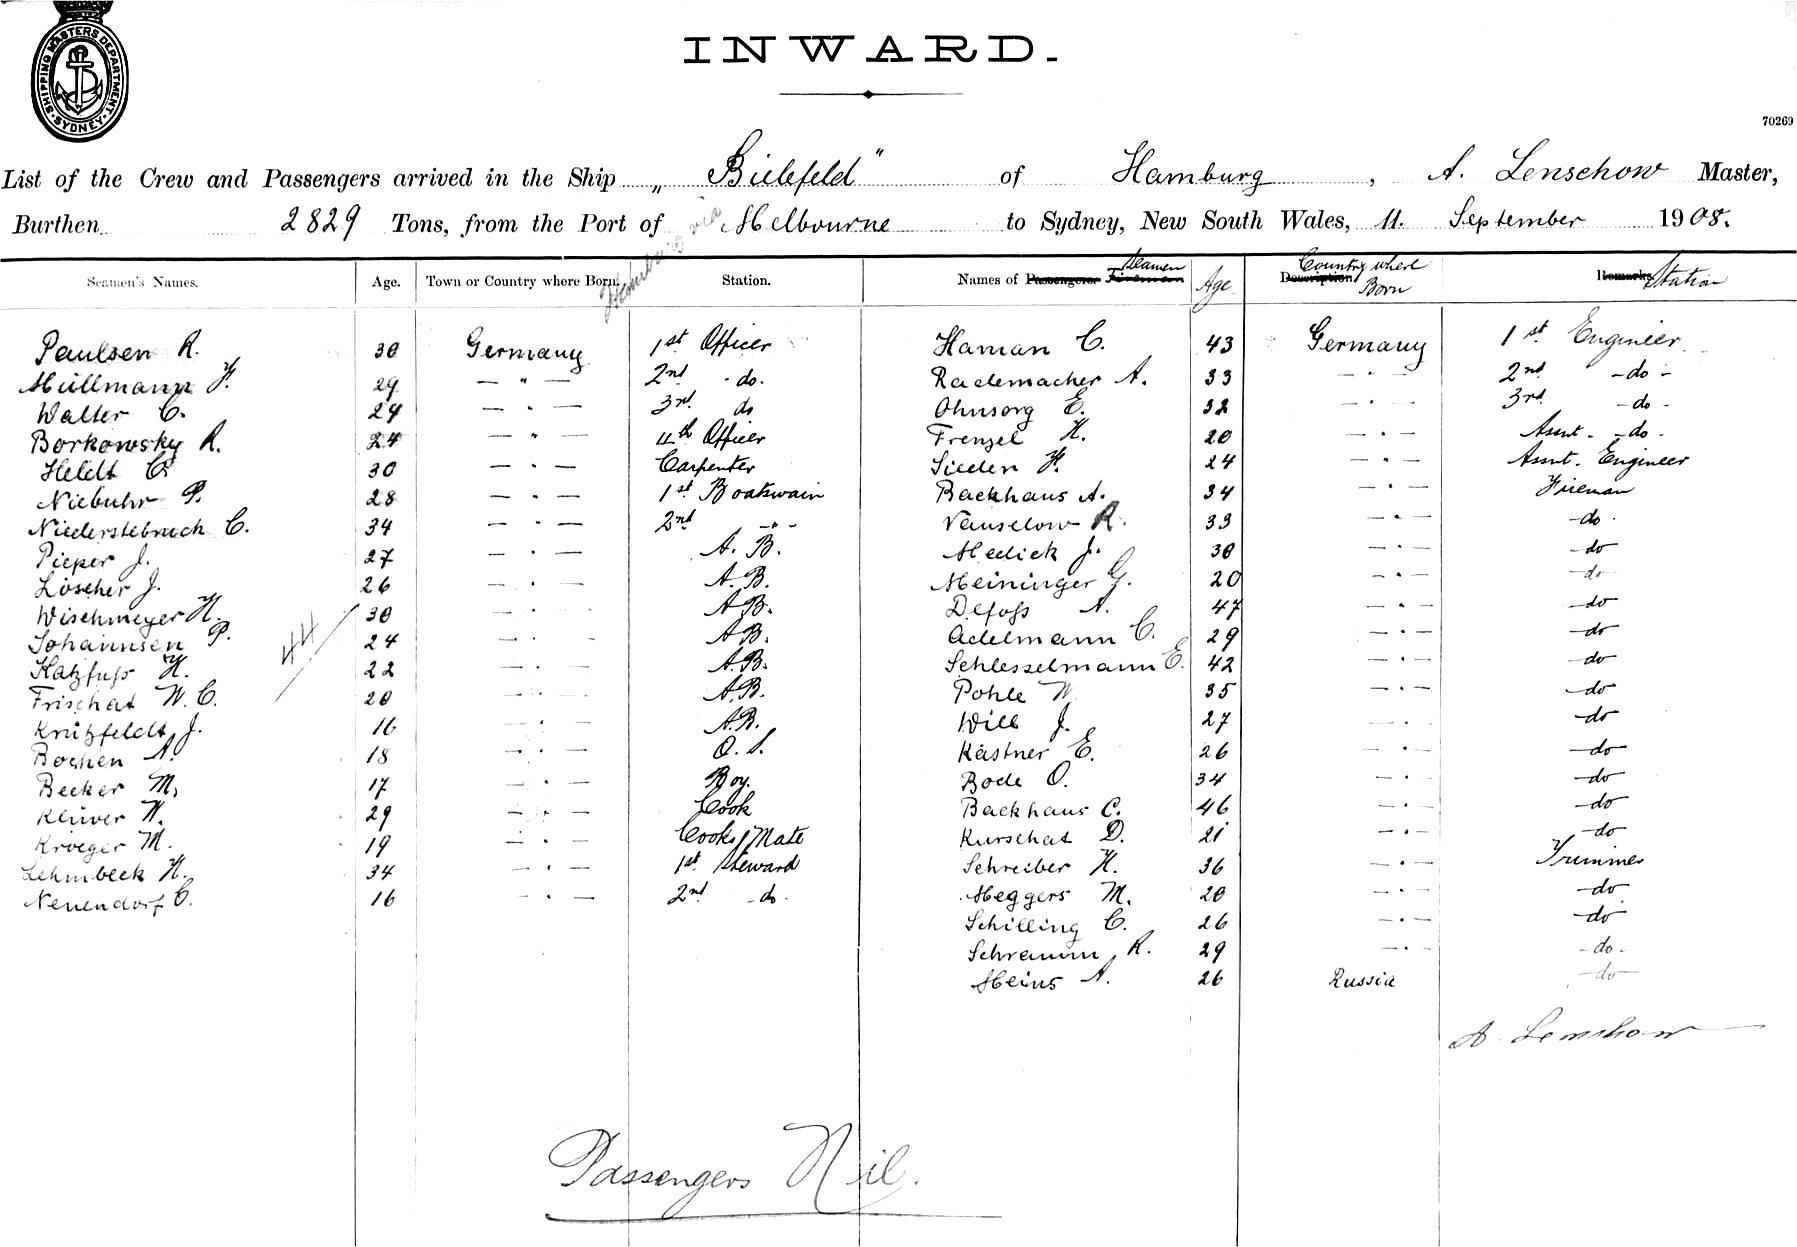 SHIPPING MASTERS DEPARTMENT · SYDNEY ·
INWARD.
70269
List of the Crew and Passengers arrived in the Ship „ Bielefeld " of Hamburg , A. Lenschow Master,
Burthen 2829 Tons, from the Port of Hamburg via Melbourne to Sydney, New South Wales, 11. September 1908.
Seamen's Names. Age. Town or Country where Born. Station. Names of Passengers. Firemen Seamen Age Description Country where Born Remarks Station
Paulsen R. 30 Germany 1st Officer Haman C. 43 Germany 1st Engineer
Müllmann H. 29 — " — 2nd - do. Rademacher A. 33 — " — 2nd - do -
Walter C. 24 — " — 3rd do Ohnsorg E. 32 — " — 3rd - do -
Borkowsky R. 24 — " — 4th Officer Frenzel H. 20 — " — Assnt. - do -
Heldt C. 30 — " — Carpenter Sieden H. 24 — " — Assnt. Engineer
Niebuhr P. 28 — " — 1st Boatswain Backhaus A. 34 — " — Fireman
Niederstebruch C. 34 — " — 2nd - " - Vanselow R. 33 — " — do
Pieper J. 27 — " — A. B. Medick J. 30 — " — do
Löscher J. 26 — " — A. B. Meininger G. 20 — " — do
Wischmeyer H. 30 — " — A. B. Defoss A. 47 — " — do
Johannsen P. 24 — " — A. B. Adelmann C. 29 — " — do
44
Katzfuss H. 22 — " — A. B. Schlesselmann E. 42 — " — do
Frischat W. C. 20 — " — A. B. Pohle W. 35 — " — do
Krützfeldt J. 16 — " — A. B. Will J. 27 — " — do
Bochen A. 18 — " — O. S. Kästner E. 26 — " — do
Becker M. 17 — " — Boy. Bode O. 34 — " — do
Klüver H. 29 — " — Cook Backhaus C. 46 — " — do
Kroeger M. 19 — " — Cooks Mate Kurschat D. 21 — " — do
Lehmbeck H. 34 — " — 1st Steward Schreiber H. 36 — " — Trimmer
Neuendorf C. 16 — " — 2nd - do - Meggers M. 20 — " — do
Schilling C. 26 — " — do
Schramm R. 29 — " — do
Heins A. 26 Russia do
A. Lenschow
Passengers Nil.